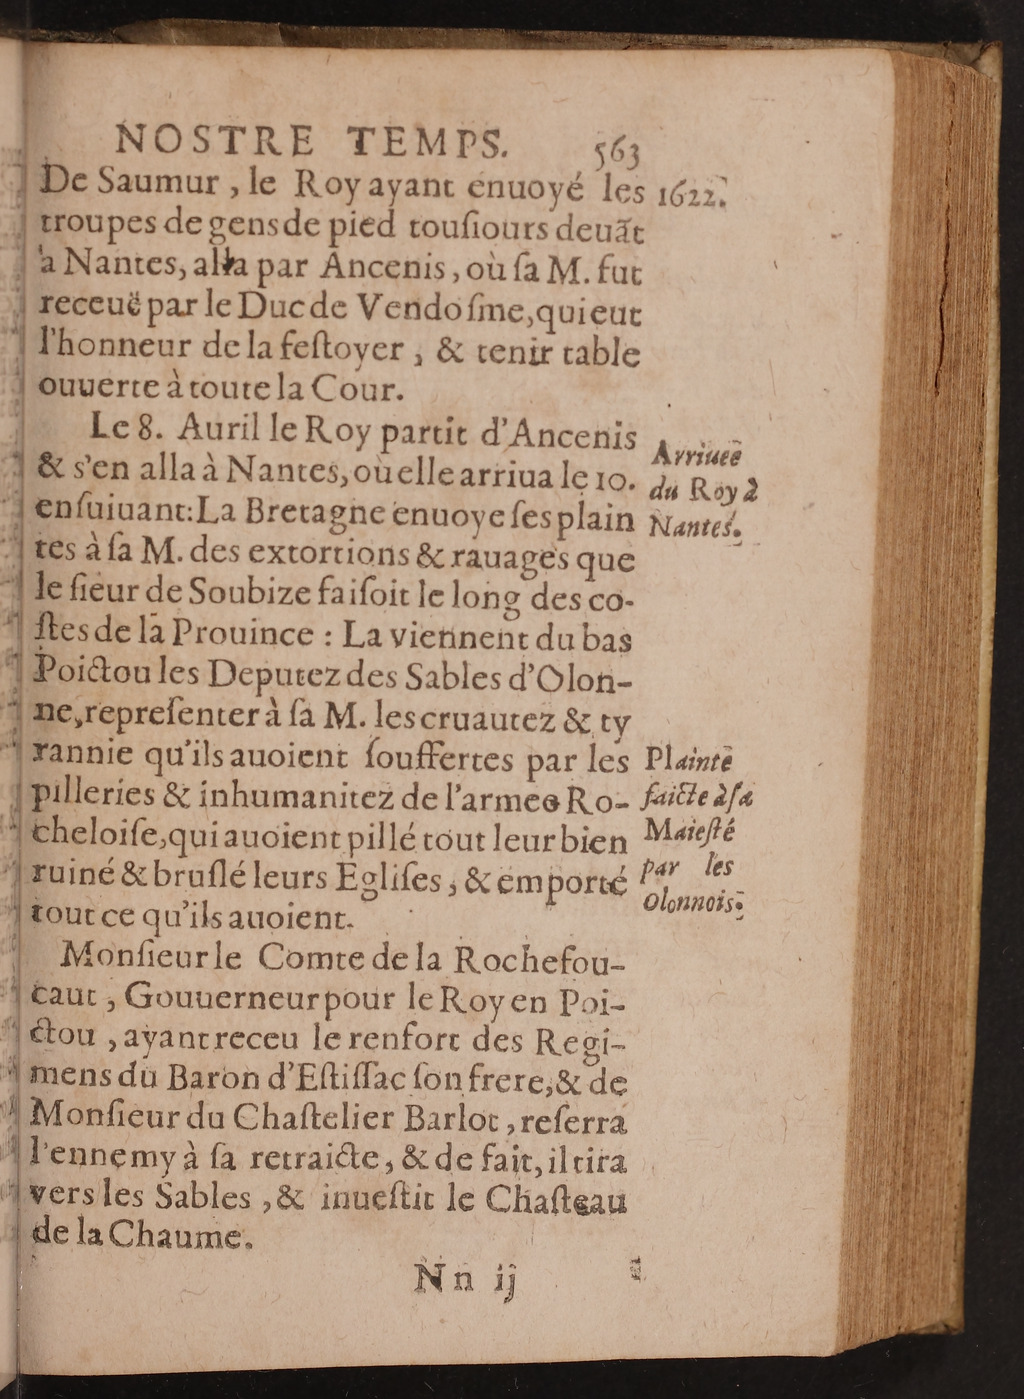 NOSTRE TEMPS. 563
De Saumur, le Roy ayant enuoyé les 1622.
troupes de gens de pied touſiours deuãt
à Nantes, alla par Ancenis, où ſa M. fut
receuë par le Duc de Vendoſme, qui eut
l'honneur de la feſtoyer, & tenir table
ouuerte à toute la Cour.
Le 8. Auril le Roy partit d'Ancenis
& s'en alla à Nantes, où elle arriua le 10.
enſuiuant: La Bretagne enuoye ſes plain
tes à ſa M. des extortions & rauages que
le ſieur de Soubize faiſoit le long des co-
ſtes de la Prouince : La viennent du bas
Poictou les Deputez des Sables d'Olon-
ne, repreſenter à ſa M. les cruautez & ty
rannie qu'ils auoient ſouffertes par les
pilleries & inhumanitez de l'armee Ro-
cheloiſe, qui auoient pillé tout leur bien
ruiné & bruſlé leurs Egliſes, & emporté
tout ce qu'ils auoient.
Monſieur le Comte de la Rochefou-
caut, Gouuerneur pour le Roy en Poi-
ctou, ayant receu le renfort des Regi-
mens du Baron d'Eſtiſſac ſon frere, & de
Monſieur du Chaſtelier Barlot, reſerra
l'ennemy à ſa retraicte, & de fait, il tira
vers les Sables, & inueſtit le Chaſteau
de la Chaume.
Nn ij
Arriuee
du Roy à
Nantes.
Plainte
faicte à ſa
Maieſté
par les
Olonnois.